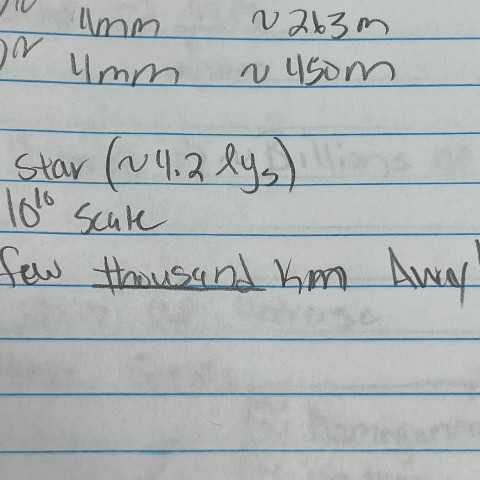 4mm ~263m
4mm ~450m
star (~4.2 lys)
10^10 scale
few thousand km Away